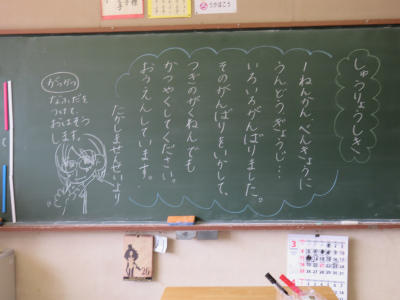 しゅうりょうしき
一ねんかん、べんきょうに
うんどう、ぎょうじ…
いろいろがんばりました。
そのがんばりをいかして、
つぎのがくねんでも
かつやくしてください。
おうえんしています。
たがしませんせいより
なふだを
つけて
おはそう
します。
3
26